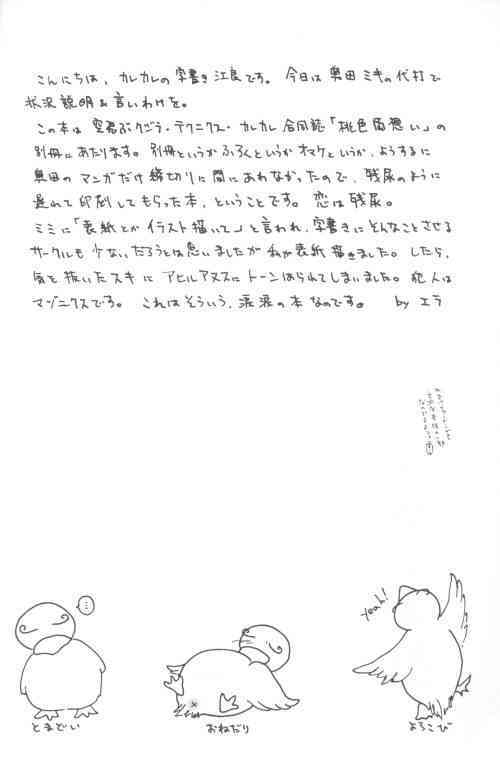 こんにちは、カレカレの字書き江良です。今日は奥田ミキの代打で
状況説明&言いわけを。
この本は 空震ぶクゴラ・テクニクス・カレカレ合同誌「桃色片想い」の
別冊にあたります。別冊というかふろくというかオマケというか、ようするに
奥田のマンガだけ締切りに間にあわなかったので、残尿のように
遅れて印刷してもらった本、ということです。恋は残尿。
ミミに「表紙とかイラスト描いて。」と言われ、字書きにそんなことさせる
サークルも少ないだろうとは思いましたが私が表紙描きました。したら、
気を抜いたスキに、アヒルアヌスにトーンはられてしまいました。犯人は
マゾニクスです。 これはそういう、涙涙の本なのです。 by エラ
…
yeah!
とまどい
おねだり
よろこび